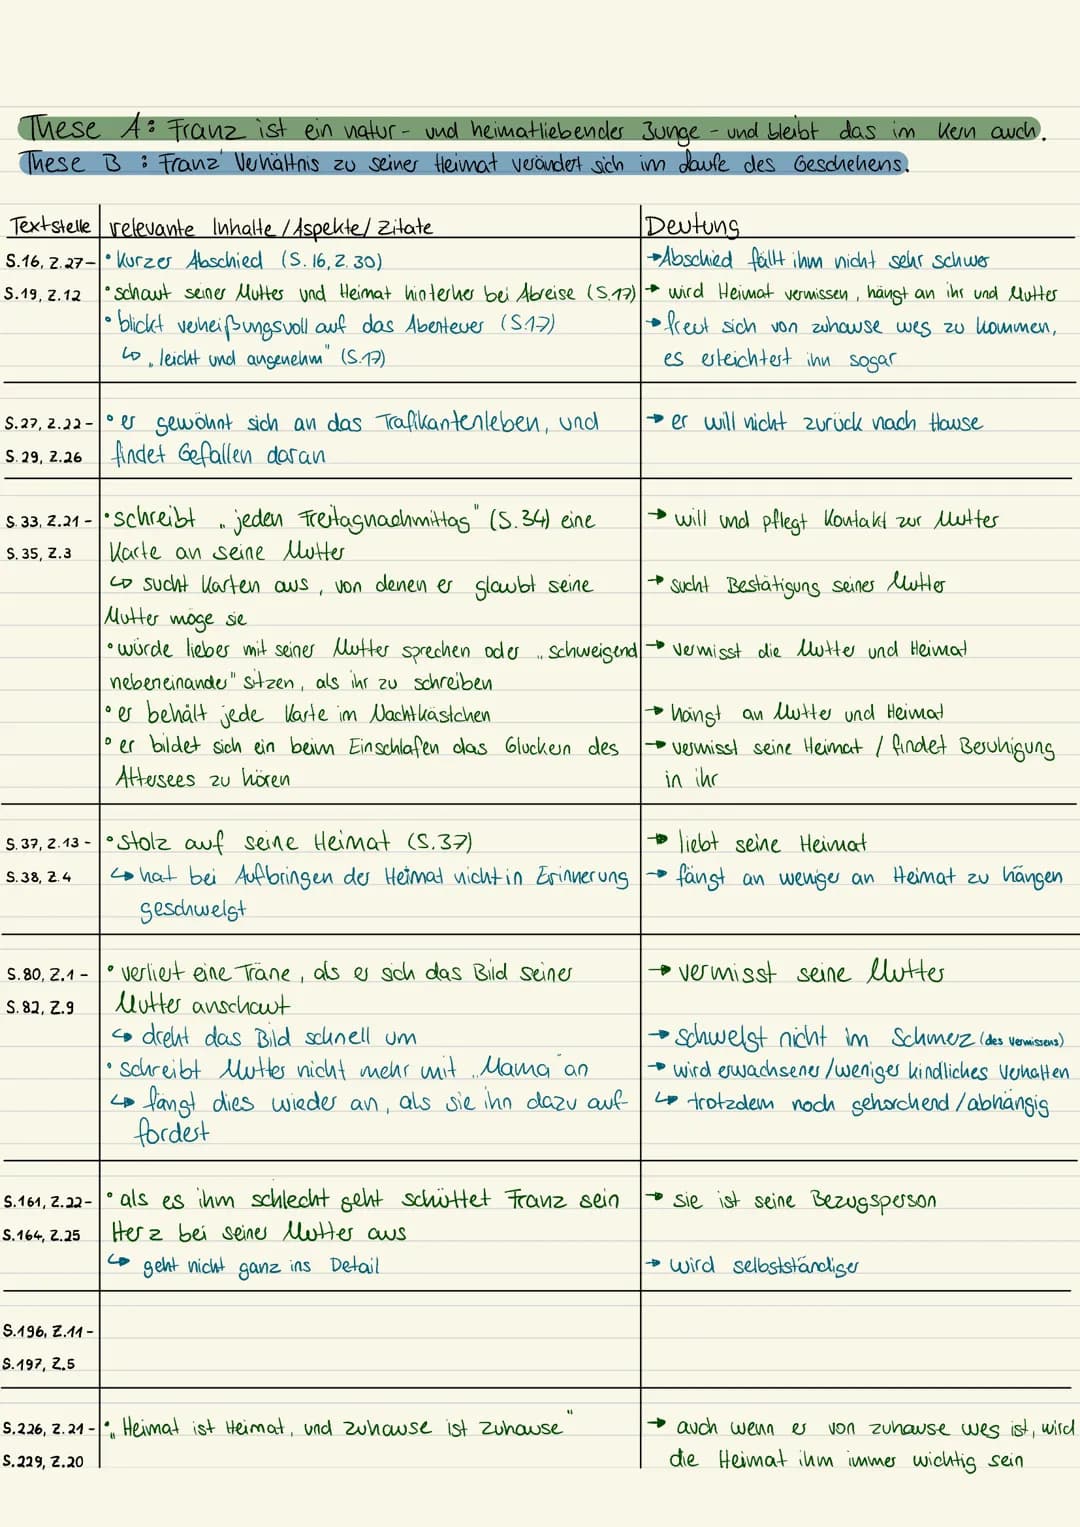 These A: Franz ist ein natur- und heimatliebender Junge - und bleibt das im Kern auch.
These B : Franz' Verhältnis zu seiner Heimat verändert sich im Laufe des Geschehens.
Textstelle relevante Inhalte / Aspekte / Zitate Deutung
S.16, Z.27- • Kurzer Abschied (S.16, Z.30) → Abschied fällt ihm nicht sehr schwer
S.19, Z.12 • schaut seiner Mutter und Heimat hinterher bei Abreise (S.17) → wird Heimat vermissen, hängt an ihr und Mutter
• blickt verheißungsvoll auf das Abenteuer (S.17) → freut sich von zuhause weg zu kommen,
↳ „leicht und angenehm" (S.17) es erleichtert ihn sogar
S.27, Z.22- • er gewöhnt sich an das Trafikantenleben, und → er will nicht zurück nach Hause
S.29, Z.26 findet Gefallen daran
S.33, Z.21 - • schreibt „jeden Freitagnachmittag" (S.34) eine → will und pflegt Kontakt zur Mutter
S.35, Z.3 Karte an seine Mutter
↳ sucht Karten aus, von denen er glaubt seine → sucht Bestätigung seiner Mutter
Mutter möge sie
• würde lieber mit seiner Mutter sprechen oder „schweigend → vermisst die Mutter und Heimat
nebeneinander" sitzen, als ihr zu schreiben
• er behält jede Karte im Nachtkästchen → hängt an Mutter und Heimat
• er bildet sich ein beim Einschlafen das Gluckern des → vermisst seine Heimat / findet Beruhigung
Attersees zu hören in ihr
S.37, Z.13 - • Stolz auf seine Heimat (S.37) → liebt seine Heimat
S.38, Z.4 ↳ hat bei Aufbringen der Heimat nicht in Erinnerung → fängt an weniger an Heimat zu hängen
geschwelgt
S.80, Z.1 - • verliert eine Träne, als er sich das Bild seiner → vermisst seine Mutter
S.82, Z.9 Mutter anschaut
↳ dreht das Bild schnell um → schwelgt nicht im Schmerz (des Vermissens)
• schreibt Mutter nicht mehr mit „Mama" an → wird erwachsener / weniger kindliches Verhalten
↳ fängt dies wieder an, als sie ihn dazu auf- ↳ trotzdem noch gehorchend / abhängig
fordert
S.161, Z.22- • als es ihm schlecht geht schüttet Franz sein → sie ist seine Bezugsperson
S.164, Z.25 Herz bei seiner Mutter aus
↳ geht nicht ganz ins Detail → wird selbstständiger
S.196, Z.11 -
S.197, Z.5
S.226, Z.21 - • „Heimat ist Heimat, und Zuhause ist Zuhause" → auch wenn er von zuhause weg ist, wird
S.229, Z.20 die Heimat ihm immer wichtig sein